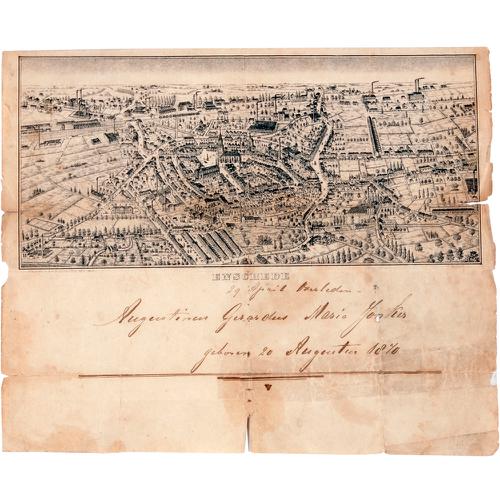 ENSCHEDE
29 April Overleden
Augustinus Girardus Maria
geboren 20 Augustus 1870